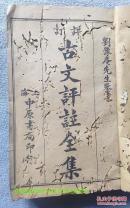 劉豫庵先生鑒定
詳訂
古文評註全集
上海中原書局印行